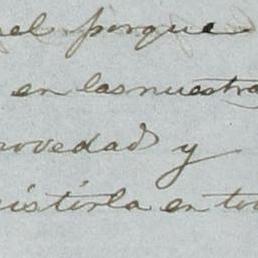 el porque
en las nuestra
novedad y
istirla en to